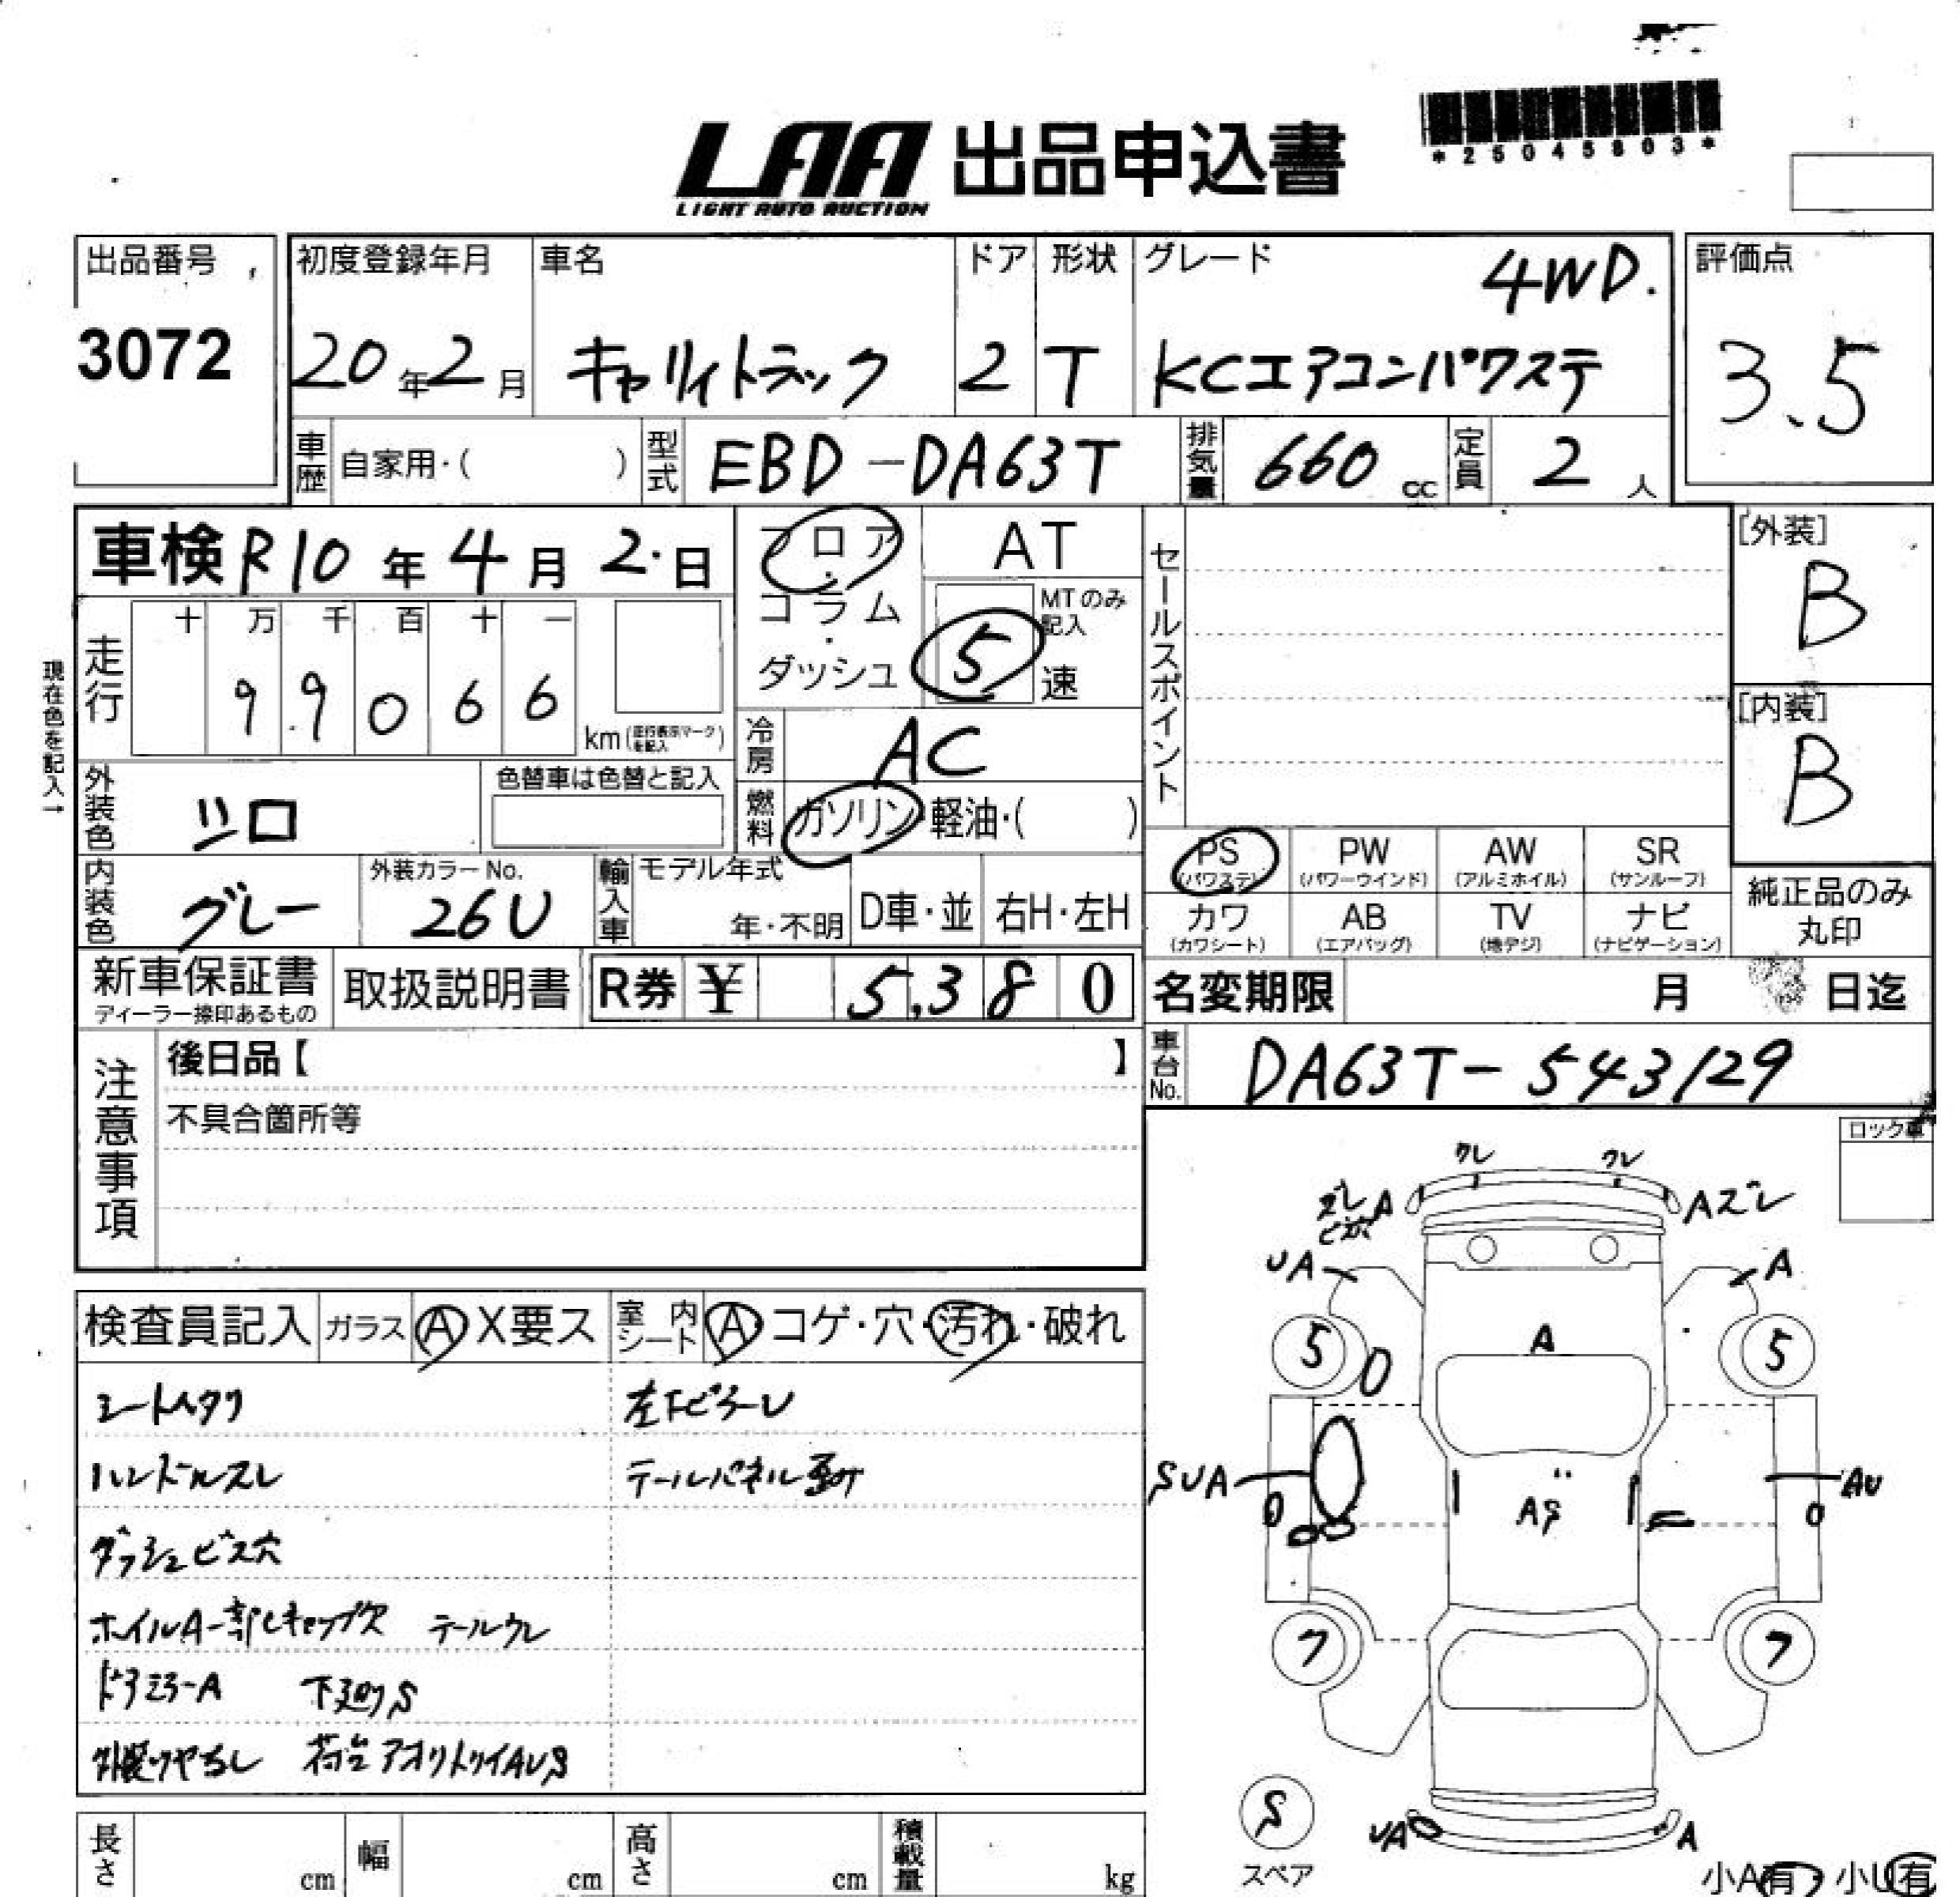 *25045803*
LAA 出品申込書
LIGHT AUTO AUCTION
出品番号
3072
初度登録年月
20年2月
車名
キャリイトラック
ドア
2
形状
T
グレード
4WD.
KCエアコンパワステ
評価点
3.5
車歴
自家用・( )
型式
EBD-DA63T
排気量
660 cc
定員
2 人
車検 R10年4月2日
フロア・コラム・ダッシュ
AT
MTのみ記入
5 速
セールスポイント
[外装]
B
[内装]
B
現在色を記入→
走行
十 万 千 百 十 一
9 9 0 6 6
km (走行表示マークを記入)
冷房
AC
燃料
ガソリン・軽油・( )
外装色
シロ
色替車は色替と記入
内装色
グレー
外装カラーNo.
26U
輸入車
モデル年式
年・不明
D車・並
右H・左H
PS (パワステ)
PW (パワーウインド)
AW (アルミホイル)
SR (サンルーフ)
カワ (カワシート)
AB (エアバッグ)
TV (地デジ)
ナビ (ナビゲーション)
純正品のみ丸印
新車保証書
ディーラー捺印あるもの
取扱説明書
R券 ¥ 5,380
名変期限 月 日迄
注意事項
後日品【 】
不具合箇所等
車台No.
DA63T-543129
ロック車
検査員記入
ガラス
A X要ス
室内シート
A コゲ・穴・汚れ・破れ
シートヘタリ
左下ピラーU
ハンドルスレ
テールパネル歪み
ダッシュビス穴
ホイルA一部Cキャップ欠 テールワレ
ドアミラーA 下廻りS
外装ツヤなし 荷台アオリトリイAUS
ワレ ワレ
ズレ A
ビス穴
Aズレ
UA
A
5
5
A
SUA
AS
AU
7
7
S
スペア
UA
A
小A有・小U有
長さ cm
幅 cm
高さ cm
積載量 kg